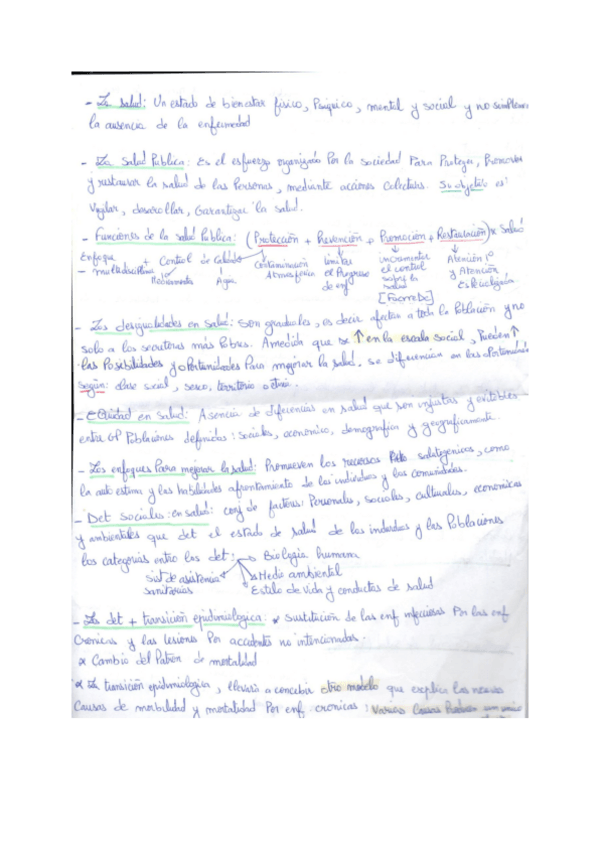 - La salud: Un estado de bienestar físico, Psíquico, mental y social y no simplemen
la ausencia de la enfermedad
- La Salud Pública: Es el esfuerzo organizado Por la sociedad Para Proteger, Promover
y restaurar la salud de las Personas, mediante acciones Colectivas. Su objetivo es:
Vigilar, desarrollar, Garantizar la salud.
- Funciones de la salud Pública: (Protección + Prevención + Promoción + Restauración) x Salud
Enfoque
- multidisciplina + Control de Calidad
Medicamentos Agua
Contaminación
Atmosferica
limitar
el Progreso
de enf
incrementar
el control
sobre la
salud
Atención 1º
y Atención
Especializada
- Las desigualdades en salud: Son graduales, es decir afectan a toda la Población y no
solo a los sectores más Pobres. A medida que se ↑ en la escala Social, Pueden ↑
las Posibilidades y oportunidades Para mejorar la salud. se diferencian en las oportunidades
según: clase social, sexo, territorio o etnia.
- Equidad en Salud: Ausencia de diferencias en salud que son injustas y evitables
entre GP Poblaciones definidas: sociales, economico, demografica y geograficamente.
- Los enfoques Para mejorar la salud: Promueven los recursos salutogenicos, como
la autoestima y las habilidades afrontamiento de los individuos y las comunidades.
- Det Sociales: en salud: conj de factores: Personales, sociales, culturales, economicas
y ambientales que det el estado de salud de los individuos y las Poblaciones
los categorias entre los det: → Biologia humana
Sist de asistencia
sanitarias
Medio ambiental
Estilo de vida y conductas de salud
- Los det + transición epidemiologica: * Sustitución de las enf infecciosas Por las enf
Cronicas y las lesiones Por accidentes no intencionados.
* Cambio del Patron de mortalidad
* La transición epidemiologica, llevaria a concebir otro modelo que explica las nuevas
Causas de morbilidad y mortalidad Por enf cronicas: Varias Causas Pueden